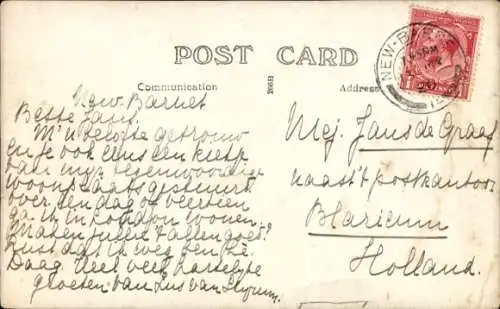 POST CARD
Communication
Address
NEW-BARNET
New-Barnet
Beste Jans.
M'n belofte getrouw
en je ook eens een kiekje
van mijn tegenwoordige
woonplaats gestuurd
over een dag of veertien
ga ik in Londen wonen.
Maken jullie 't allen goed?
Rust dat ik weg ben, hè.
Daag. Veel veel hartelijke
groeten van Lus van
Mej. Jans de Graaf
naast 't postkantoor
Blaricum
Holland.